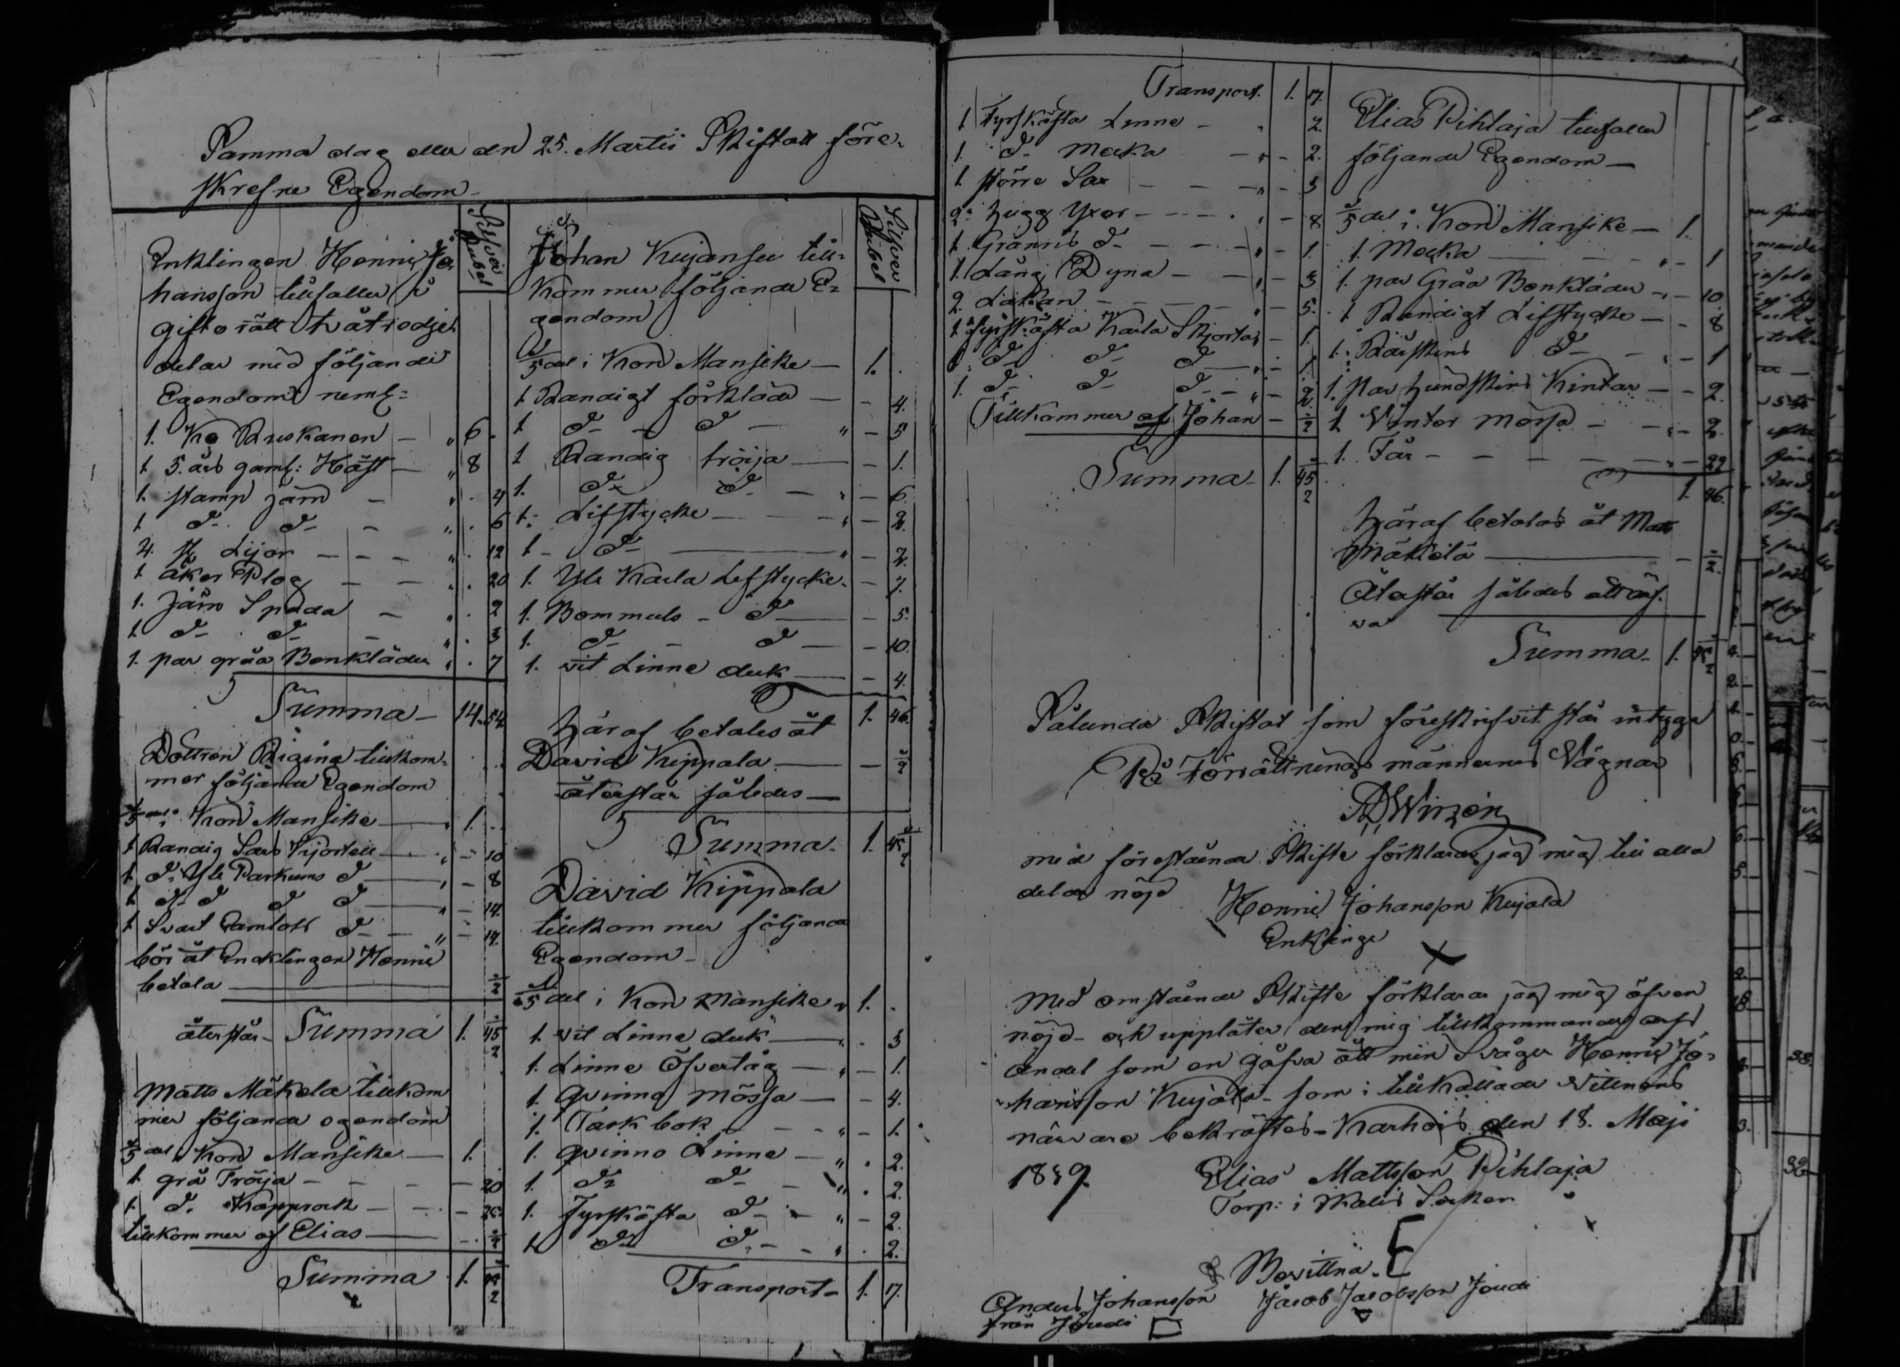 Samma dag eller den 25. Martii Skiftas före-
skrefne Egendom
Silfver Rubel
Enklingen Hennie Jo-
hansson tillfaller i
gifto rätt två tredje
delar med följande
Egendom neml:
1. Ko Ruskanen — " 6.
1. 5. års gaml: Häst — " 8
1. stamp järn — " . 4
1. d. d. — " . 6
4. st Lijor — — — " . 12
1. åker Plog — — . 20
1. järn Spada — " . 2
1. d. d. — " . 3
1. par gråa Benkläder " . 7
Summa — 14. 54.
Dottren Regina tillkom-
mer följande Egendom
1/5 del i Kon Mansike — 1.
1. Randig Sars Kjortell — " — 10
1. d. Yle Parkums d — " — 8
1. d. d d d — " — 14.
1. Svart Camlott d — " — 14.
bör åt Enklingen Hennie
betala — 1/2
återstår — Summa 1. 45 1/2
Matts Mäkelä tillkom
mer följande egendom
1/5 del i Kon Mansike — 1.
1. grå Tröija — — — 20
1. d. Kapprock — — 25.
tillkommer af Elias — 1/2
Summa 1. 45 1/2
Silfver Rubel
Johan Kujansu till-
kommer följande E-
gendom
1/5 del i Kon Mansike — 1.
1 Randigt förkläde — — 4.
1 d — d — " — 5
1 Randig tröija — — 1.
1. d. d. — " — 6.
1. Lifstycke — — " — 2.
1 — d — " — 2.
1. Yle Karla Lifstycke — — 7.
1. Bommuls — d — — 5.
1. d — d — — 10.
1. vit Linne duk — — 4.
1. 46.
Häraf betales åt
David Kippala — — 1/2
återstår således —
Summa. 1. 45 1/2
David Kippala
tillkommer följande
Egendom —
1/5 del i Kon Mansike " 1.
1. vit Linne duk — " . 3
1. Linne Öfvertåg — " — 1.
1. qvinno mössa — — 4.
1. Task bok — — " — 1.
1. qvinno Linne — " . 2.
1. d. d. — " . 2.
1. Fyrskäfta d — " — 2.
1. d. d. — — " . 2.
Transport — 1. 17.
Transport. 1. 17.
1 Fyrskäfta Linne — " 2
1. d — Mecko — " — 2.
1 större Sax — — — " — 3
2. hugg Yxor — — — . " — 8
1. Gränsib d — — — " — 1.
1. Lång Dyna — — " — 3
2. Lakan — — — — " — 5.
1. Fyrskäfta Karla Skjortor — 1.
1. d — d — d — " — 1.
1. d — d — d — " — 2
Tillkommer af Johan — 1/2
Summa — 1. 45 1/2
Elias Pihlaja tillfaller
följande Egendom —
1/5 del i Kon Mansike — 1.
1. Mecko — — " — 1
1. par Gråa Benkläder — — 10.
1. Randigt Lifstycke — — 8
1. Fårskins d — — " — 1
1. par hundskins Kintar — — 2.
1. Vinter mössa — — " — 2.
1. Får — — — — — " — 22
1. 46.
häraf betalas åt Matts
Mäkelä — — 1/2
Återstår således att ärf-
va
Summa. 1. 45 1/2
Sålunda Skiftat som föreskrifvit står intyga
På Förrättnings männernes Vägnar
Winzén
med förestående Skifte förklarar jag mig till alla
delar nöjd Hennie Johansson Kujala
Enklinge
X
Med omstående Skifte förklarar jag mig äfven
nöjd och upplåter den mig tillkommande arfs
andel som en gåfva åt min Svåger Hennie Jo-
hansson Kujala — som i tillkallade Vittnens
närvaro bekräftes — Karhois den 18. Maji
1839. Elias Mattsson Pihlaja
Torp: i Kalis Socken
Bevittna
Anders Johansson Jacob Jacobsson Joude
från Joude